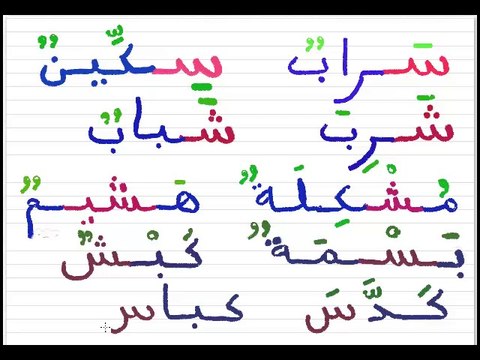 سَرابٌ سِكِّينٌ
شَرِبَ شَبابٌ
مُشْكِلَةٌ هَشيمٌ
بَسْمَةٌ كُبْشٌ
كَدَّسَ كباس